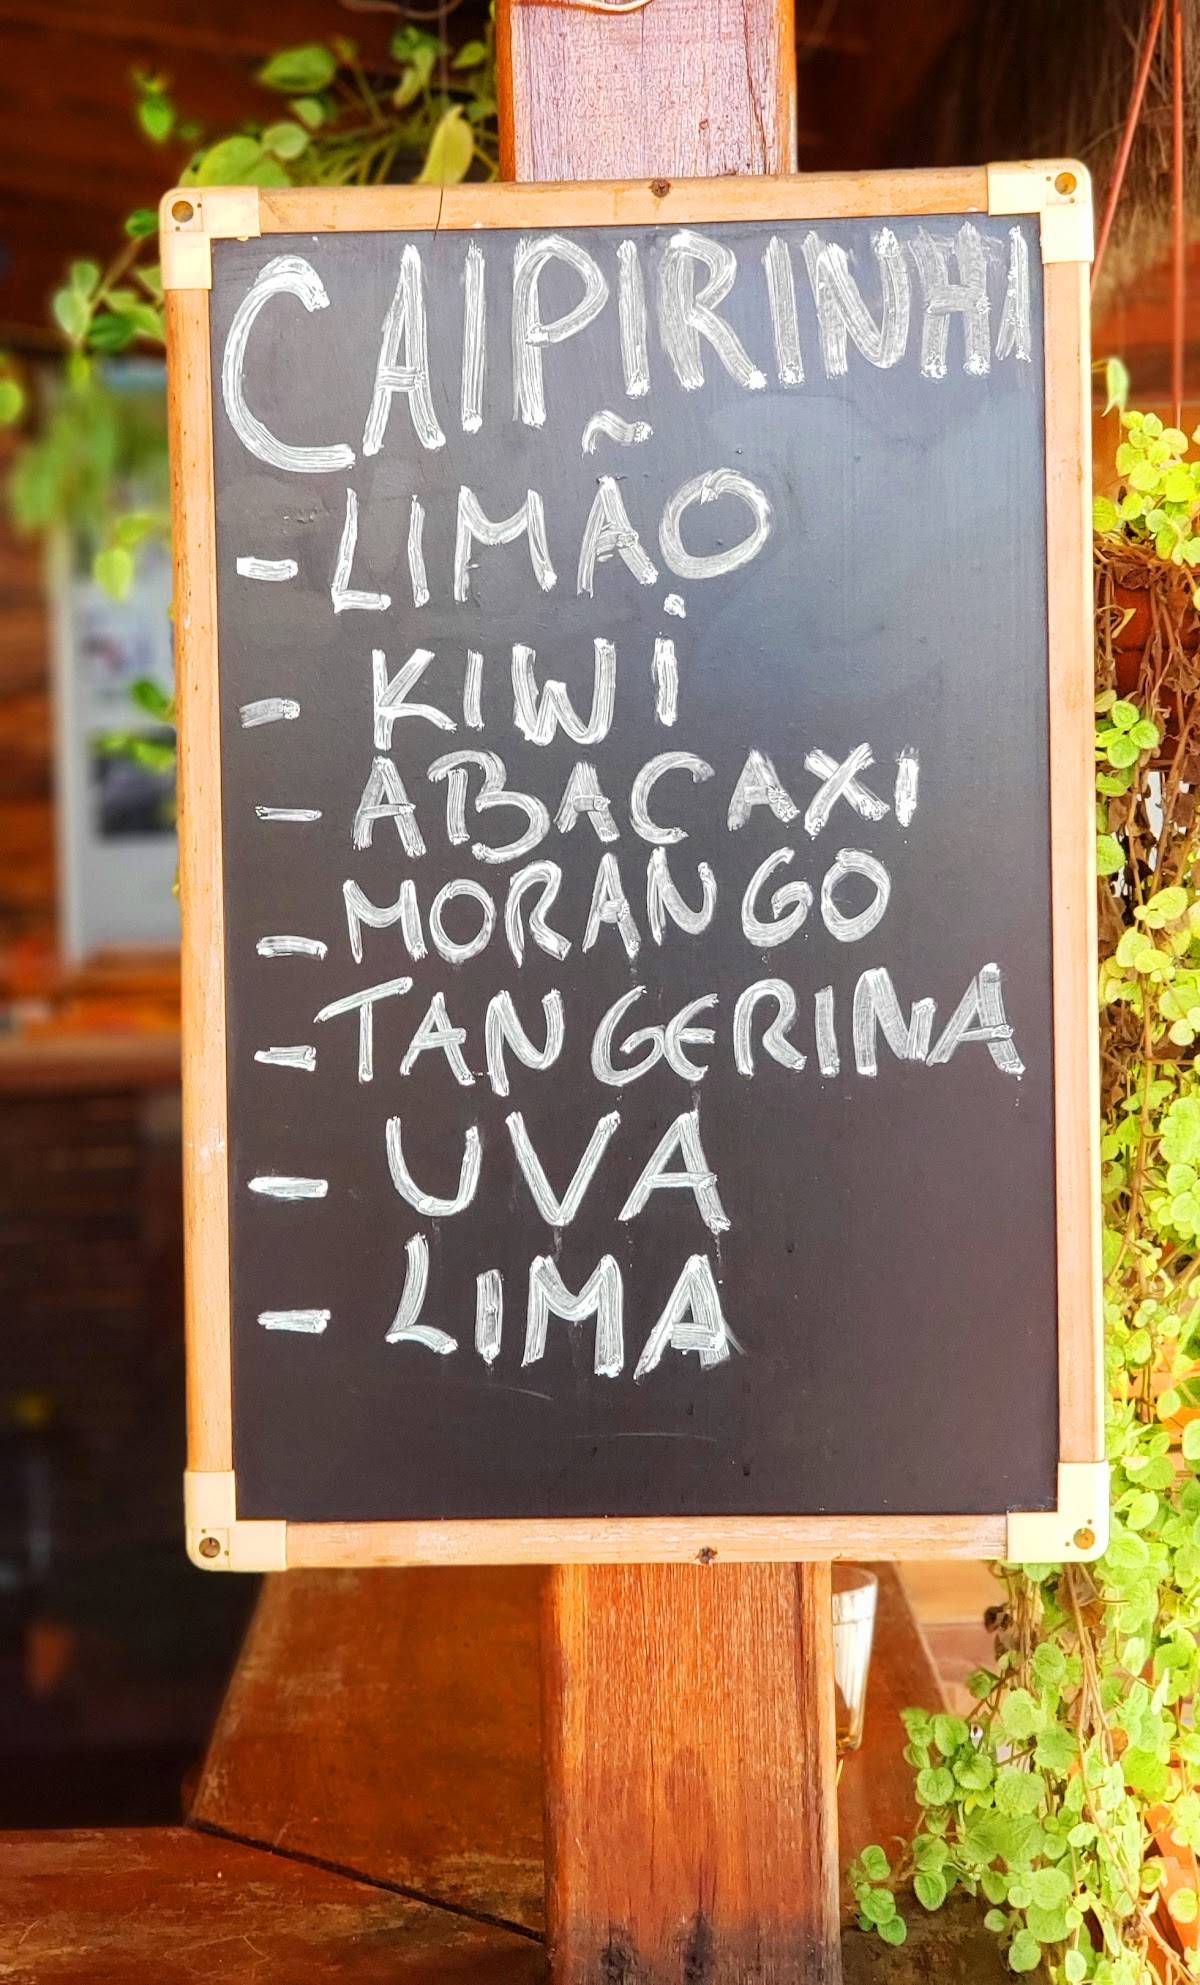 CAIPIRINHA
- LIMÃO
- KIWI
- ABACAXI
- MORANGO
- TANGERINA
- UVA
- LIMA